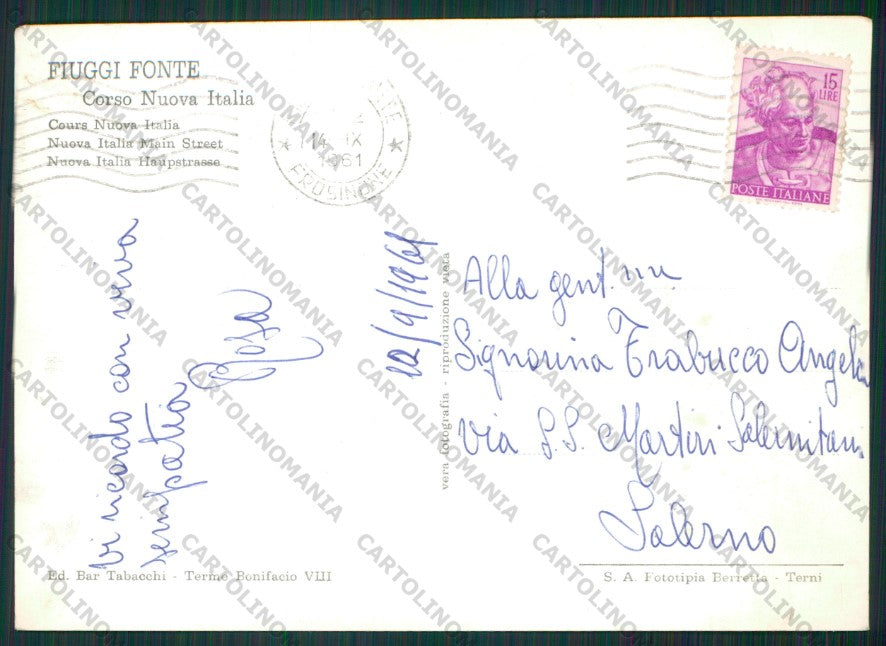 FIUGGI FONTE
Corso Nuova Italia
Cours Nuova Italia
Nuova Italia Main Street
Nuova Italia Haupstrasse
14 IX
1961
FROSINONE
15
LIRE
POSTE ITALIANE
Vi ricordo con viva
simpatia
Rosa
12/9/1961
vera fotografia - riproduzione vieta
Alla gent.
Signorina Trabucco Angela
via S.S. Martiri Salernitani
Salerno
Ed. Bar Tabacchi - Terme Bonifacio VIII
S. A. Fototipia Berretta - Terni
CARTOLINOMANIA